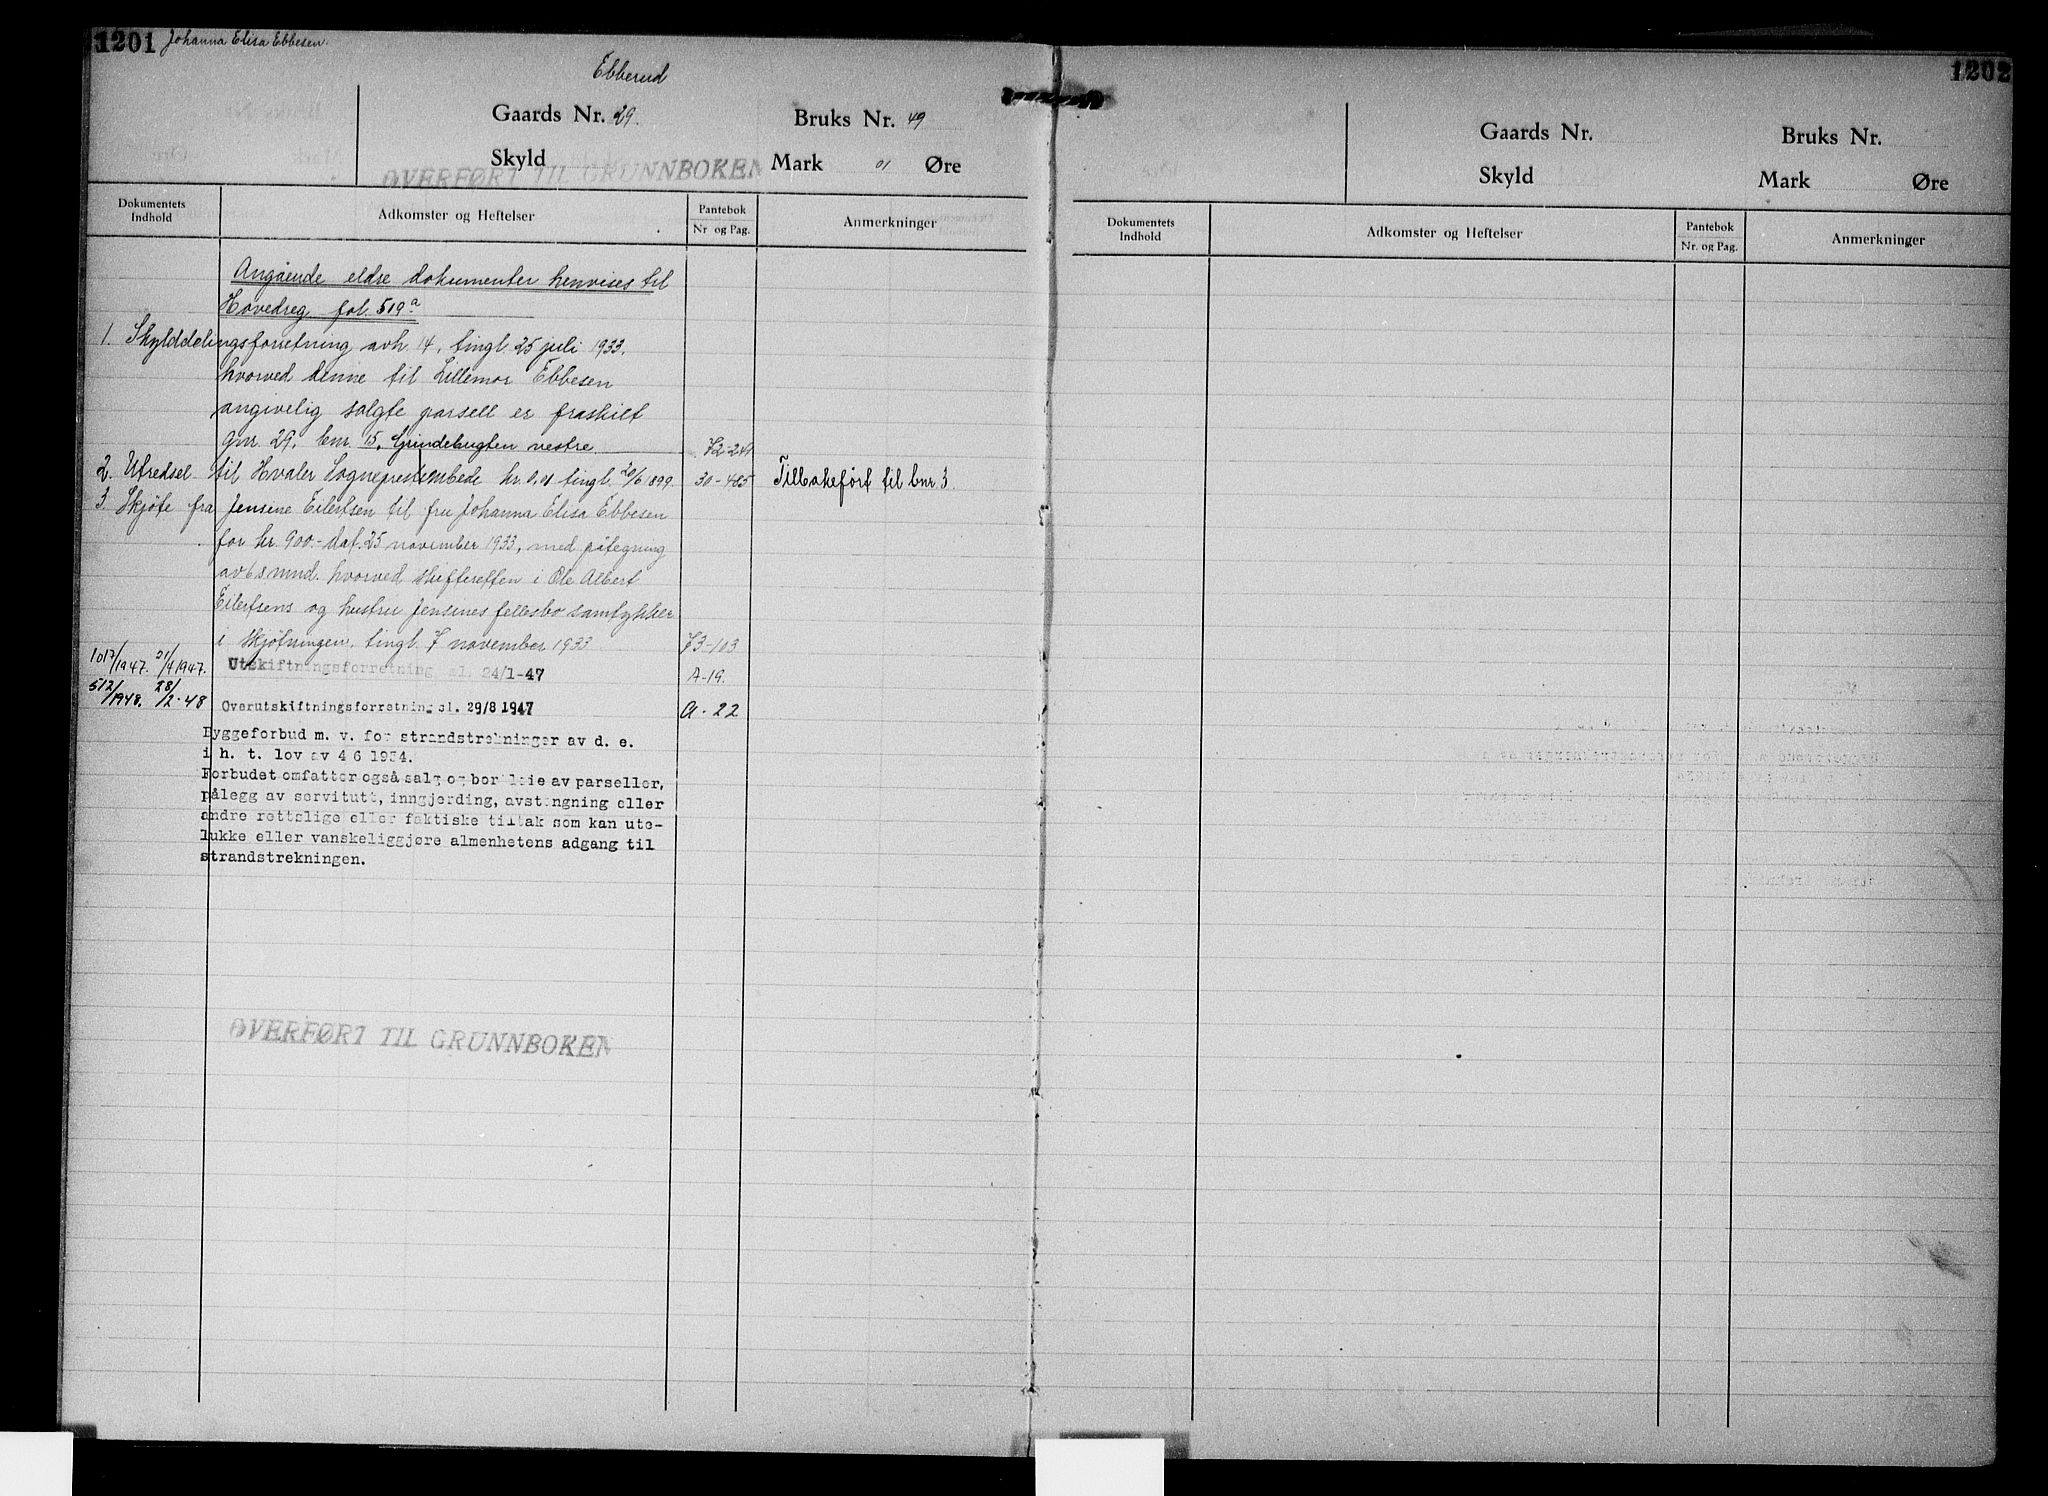 1201 Johanna Elisa Ebbesen.
Ebberud
Gaards Nr. 29. Bruks Nr. 49
Skyld Mark 01 Øre
OVERFØRT TIL GRUNNBOKEN
Dokumentets Indhold
Adkomster og Heftelser
Pantebok
Nr og Pag.
Anmerkninger
Angående eldre dokumenter henvises til
Hovedreg fol. 519a
1. Skylddelingsforretning avh. 14, tingl. 25 juli 1933,
hvorved denne til Lillemor Ebbesen
angivelig solgte parsell er fraskilt
gnr. 29, bnr. 15, Grindebugten vestre 72-241
2. Utredsel til Hvaler Sogneprestembede kr. 0,01 tingl. 20/6 1899 30-485 Tilbakeført til bnr 3.
3. Skjøte fra Jensine Eilertsen til fru Johanna Elisa Ebbesen
for kr. 900.- dat. 25 november 1933, med påtegning
av 6 s mnd. hvorved skifteretten i Ole Albert
Eilertsens og hustru Jensines fellesbo samtykker
i skjøtningen, tingl. 7 november 1933 73-103
1017/1947. 21/4 1947. Utskiftningsforretning sl. 24/1-47 A-19.
512/1948. 28/2-48 Overutskiftningsforretning sl. 29/8 1947 A-22
Byggeforbud m. v. for strandstrekninger av d. e.
i h. t. lov av 4 6 1954.
Forbudet omfatter også salg og bortleie av parseller,
pålegg av servitutt, inngjerding, avstengning eller
andre rettslige eller faktiske tiltak som kan ute-
lukke eller vanskeliggjøre almenhetens adgang til
strandstrekningen.
OVERFØRT TIL GRUNNBOKEN
1202
Gaards Nr. Bruks Nr.
Skyld Mark Øre
Dokumentets Indhold
Adkomster og Heftelser
Pantebok
Nr. og Pag.
Anmerkninger